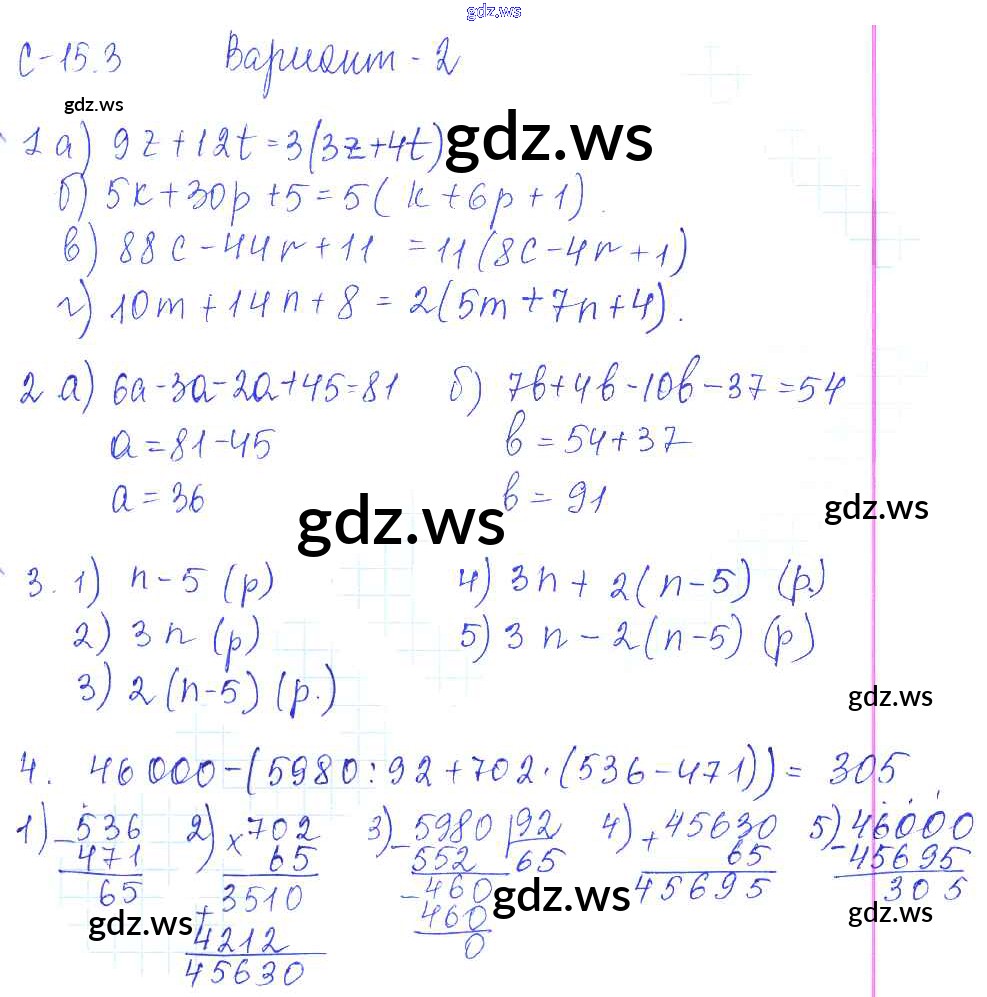 gdz.ws
С-15.3 Вариант - 2
gdz.ws
1 а) 9z+12t=3(3z+4t) gdz.ws
б) 5k+30p+5=5(k+6p+1).
в) 88c-44r+11 =11(8c-4r+1)
г) 10m+14n+8=2(5m+7n+4).
2 а) 6a-3a-2a+45=81 б) 7b+4b-10b-37=54
a=81-45 b=54+37
a=36 b=91
gdz.ws gdz.ws
3. 1) n-5 (р) 4) 3n+2(n-5) (р.)
2) 3n (р) 5) 3n-2(n-5) (р)
3) 2(n-5) (р.)
gdz.ws
4. 46000-(5980:92+702·(536-471))= 305
1) - 536 2) x 702 3) - 5980 | 92 4) + 45630 5) - 46000
471 65 552 65 65 45695
65 3510 - 460 45695 305
+ 4212 460
45630 0
gdz.ws gdz.ws gdz.ws